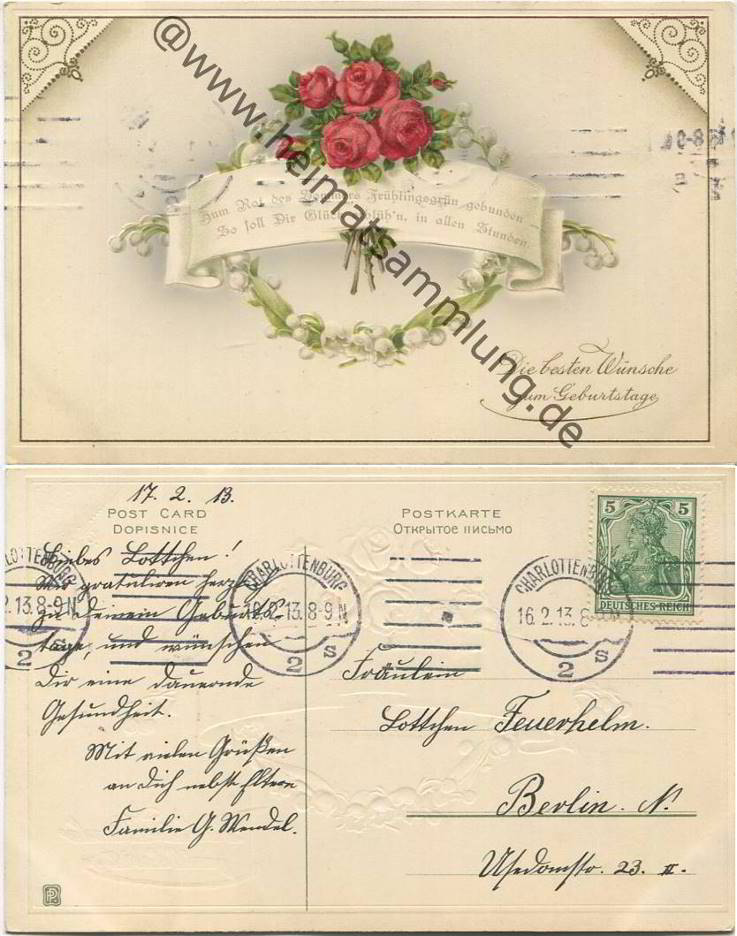 @www.heimatsammlung.de
0-8
Zum Rot des Frühlingsgrün gebunden
So soll Dir Glück blüh'n, in allen Stunden.
Die besten Wünsche
zum Geburtstage
17. 2. 13.
POST CARD
DOPISNICE
POSTKARTE
ОТКРЫТОЕ ПИСЬМО
5 5
DEUTSCHES REICH
CHARLOTTENBURG
2.13.8-9N
2 s
CHARLOTTENBURG
16.2.13.8-9N
2 s
CHARLOTTENB
16.2.13.8-
2 s
Liebes Lottchen!
Wir gratulieren herzlich
zu deinem Geburts
tage, und wünschen
Dir eine dauernde
Gesundheit.
Mit vielen Grüßen
an Dich nebst Eltern
Familie G. Wendel.
Fräulein
Lottchen Feuerhelm.
Berlin. N.
Usedomstr. 23. II.